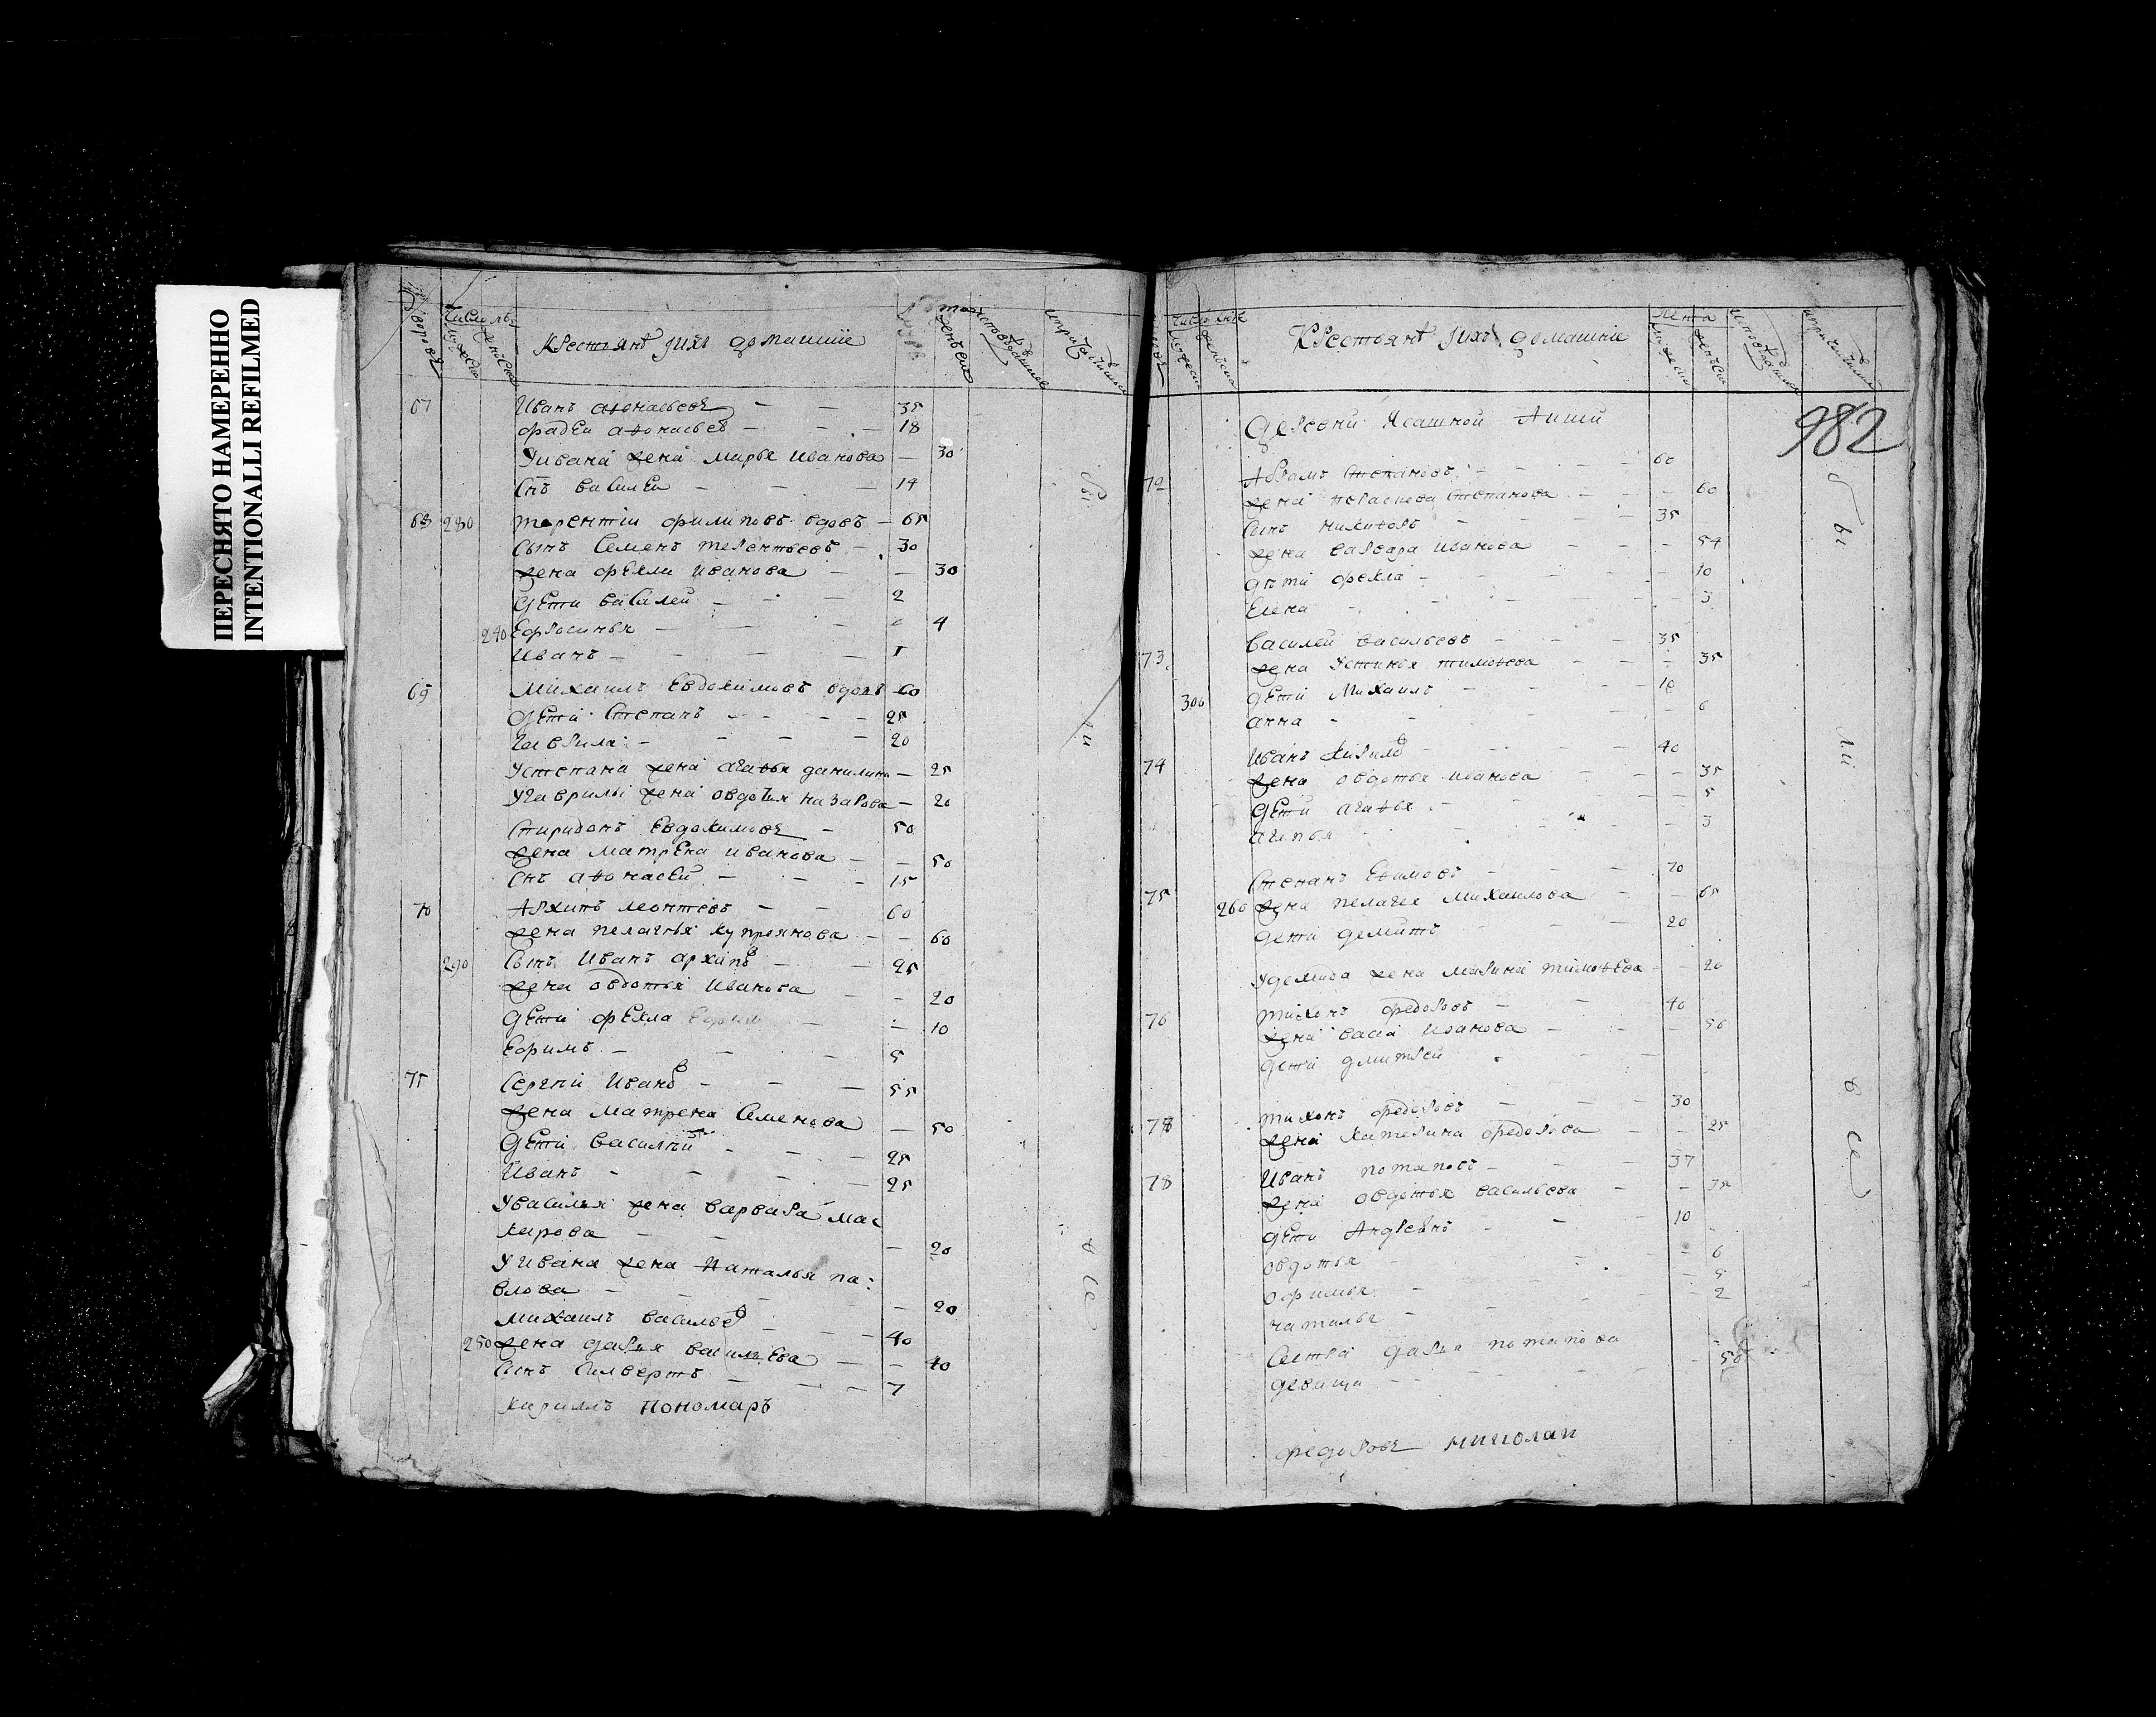 ПЕРЕСНЯТО НАМЕРЕННО
INTENTIONALLI REFILMED
Крестьянѣ ихъ домашніе
67 Иванъ Афонасьевъ — — 35
Фадеи Афонасьев — — — 18
У Ивана жена Марья Иванова — 30
Снъ Василеи — — — 14
68 280 Терентіи Филиповъ вдовъ — 65
Сынъ Семенъ Терентьевъ — 30
жена Фекла Иванова — — 30
Дети Василеи — — — 2
240 Ефросинья — — — 4
Иванъ — — — — 1
69 Михаилъ Евдокимовъ вдовъ 60
Дети Степанъ — — — 25
Гаврила — — — — 20
У Степана жена Агафья Данилина — 25
У Гаврилы жена Овдотья Назарова — 20
Спиридонъ Евдокимовъ — 50
жена Матрена Иванова — — 50
Снъ Афонасеи — — — 15
70 Архипъ Леонтевъ — — 60
жена Пелагья Купреянова — — 60
290 Сынъ Иванъ Архиповъ — — 25
жена Овдотья Иванова — — 20
Дети Фекла — — 10
Ефимъ — — — 5
71 Сергіи Ивановъ — — — 55
жена Матрена Семенова — 50
Дети Василіи — — — 25
Иванъ — — — 25
У Василья жена Варвара Мас
кирова — — — 20
У Ивана жена Наталья Па:
влова — — — 20
Михаилъ Васильевъ — — — 40
250 жена Дарья Василева — — 40
Сынъ Силвертъ — — — 7
Кириллъ Пономаръ
Числѣ
Лета
Крестьянѣ ихъ домашніе
982
Деревни Ясашной Ташли
72 Абрамъ Степановъ — — — 60
жена Параскева Степанова — — 60
Сынъ Никифоръ — — — 35
жена Варвара Иванова — — — 54
Дѣти Фекла — — — 10
Елена — — — — 3
73 Василеи Васильевъ — — — 35
жена Устинья Тимофеева — — — 35
300 Дети Михаилъ — — — 10
Анна — — — 6
74 Иванъ Кириловъ — — — 40
жена Овдотья Иванова — — — 35
Дети Агафья — — — 5
Агипья — — 3
75 Степанъ Ефимовъ — — — 70
260 жена Пелагея Михаилова — — 65
Дети Демидъ — — — 20
У Демида жена Марина Тимофеева — — 20
76 Тихонъ Федоровъ — — 40
жена Васса Иванова — — 50
Дети Дмитреи — —
77 Тихонъ Федоровъ — — — 30
жена Катерина Федорова — — 25
78 Иванъ Потаповъ — — — 37
жена Овдотья Васильева — — 35
Дети Андреянъ — — — 10
Овдотья — — 6
Офимья — — 5
Наталья — — 2
Сестра Дарья Потапова
девица — — — 50
Федоровъ Николаи